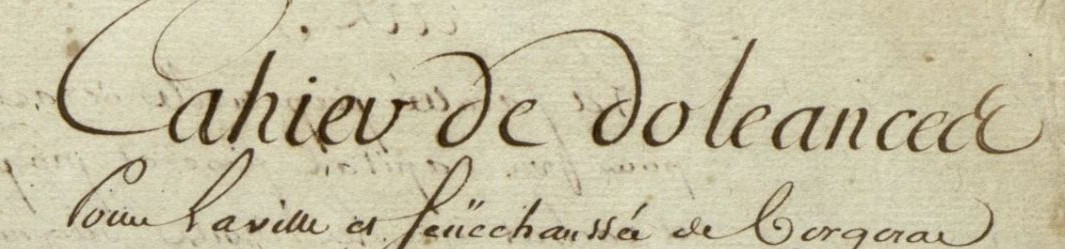 Cahier de doleances
Pour la ville et sénéchaussée de Bergerac